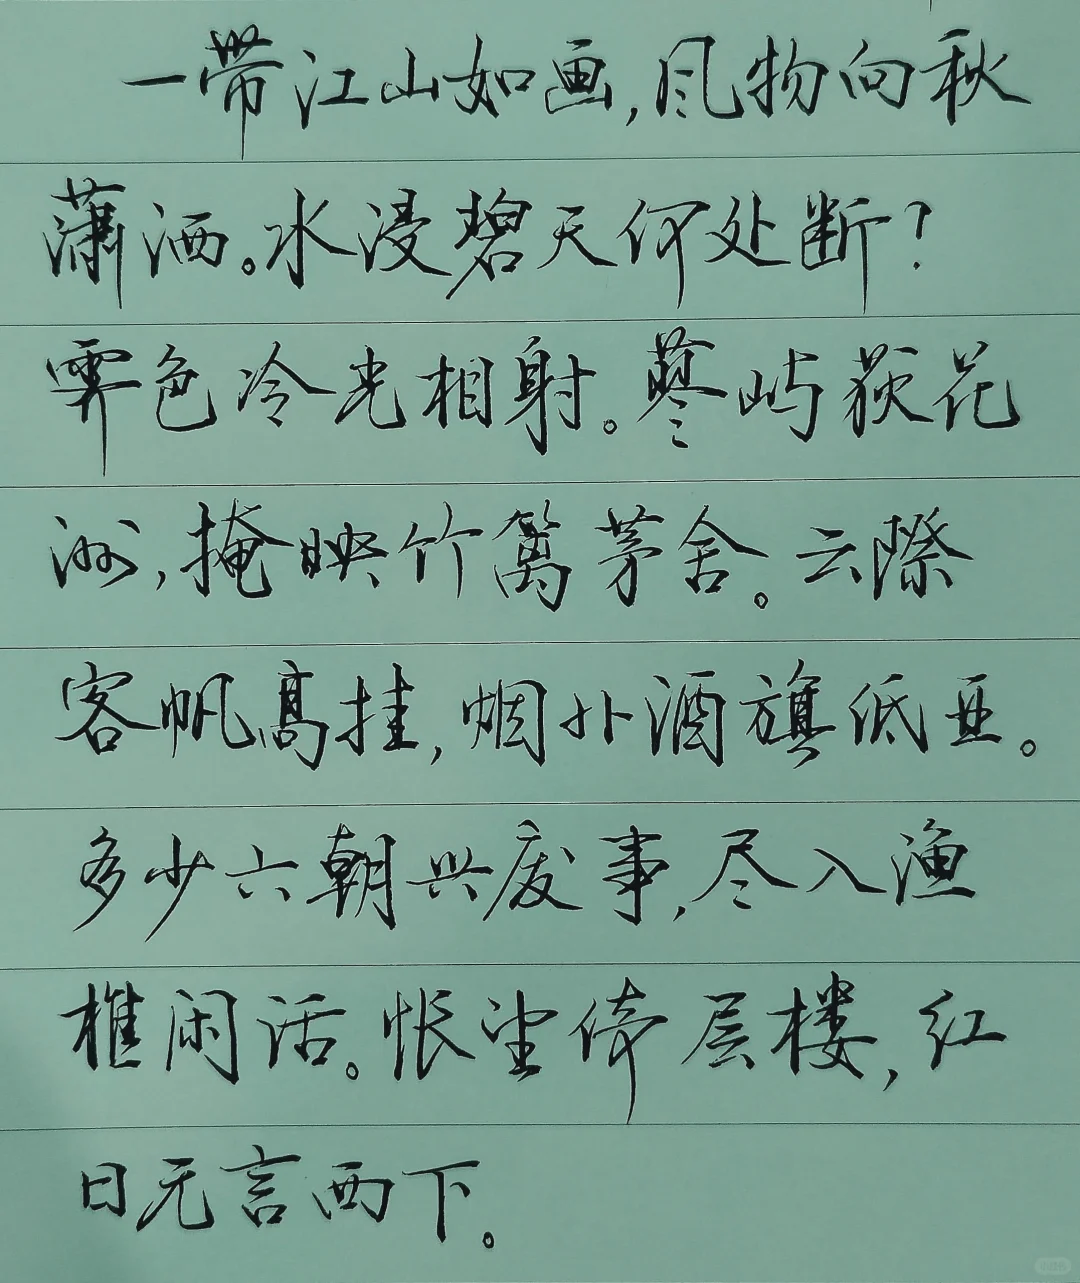 一带江山如画,风物向秋
潇洒。水浸碧天何处断?
霁色冷光相射。蓼屿荻花
洲,掩映竹篱茅舍。云際
客帆高挂,烟外酒旗低亚。
多少六朝兴废事,尽入渔
樵闲话。怅望倚层楼,红
日无言西下。